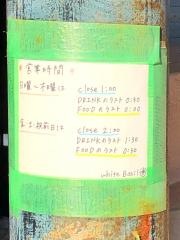 ＊営業時間＊
日曜〜木曜は close 1:00
DRINKのラスト 0:30
FOODのラスト 0:00
金・土・祝前日は close 2:00
DRINKのラスト 1:30
FOODのラスト 0:30
white Basil